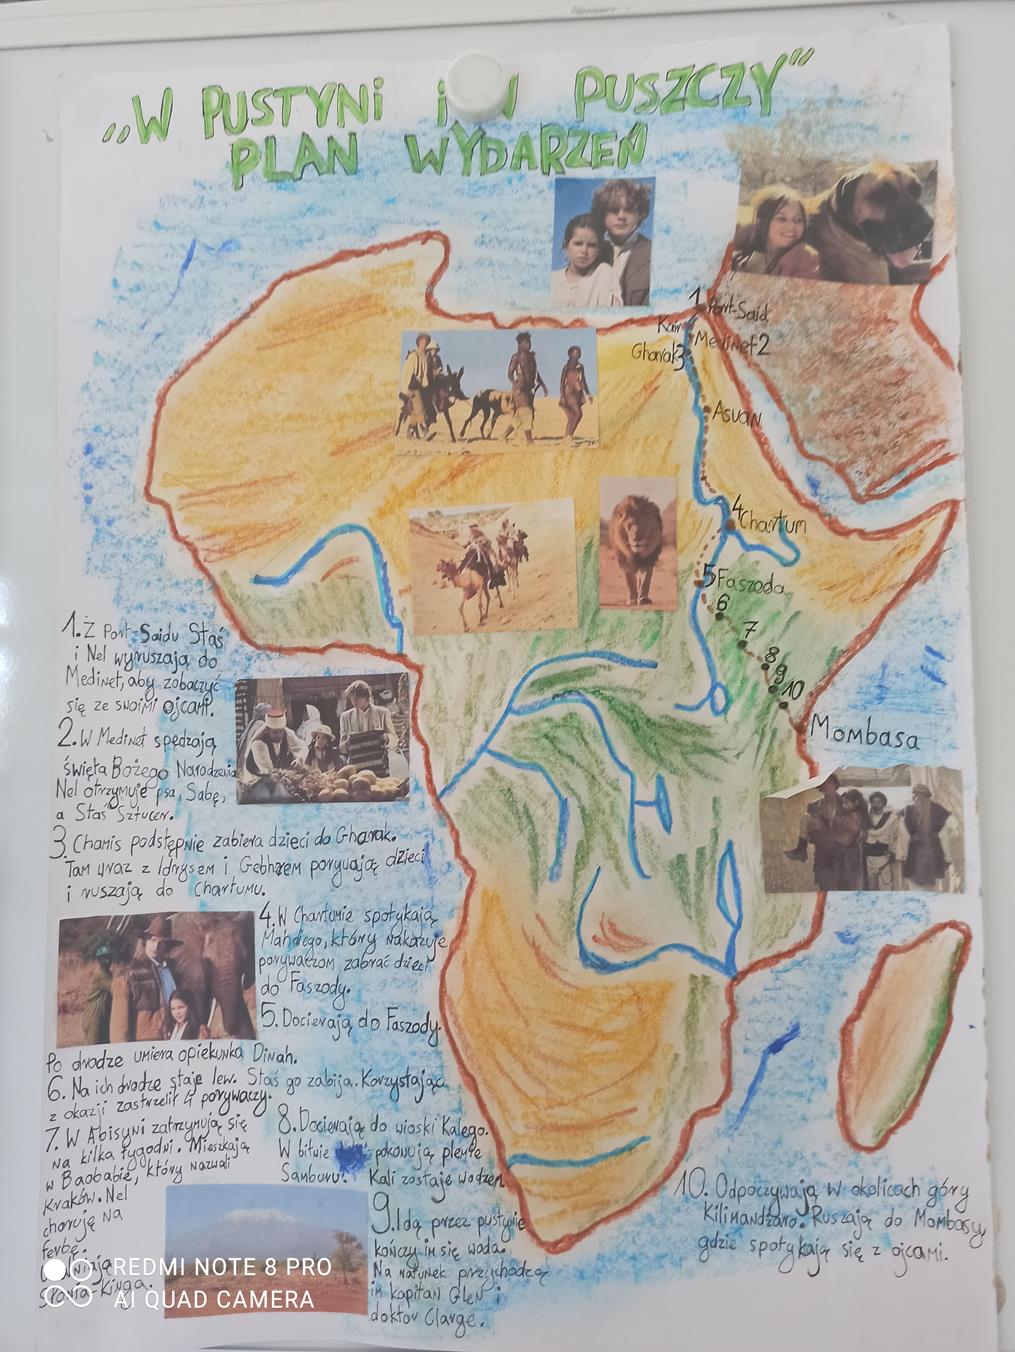 „W PUSTYNi i W PUSZCZY”
PLAN WYDARZEŃ
1 Port-Said
Kair
Medinet 2
Gharak 3
Asuan
4 Chartum
5 Faszoda
6
7
8
9
10
Mombasa
1. Z Port-Saidu Staś
i Nel wyruszają do
Medinet, aby zobaczyć
się ze swoimi ojcami.
2. W Medinet spędzają
święta Bożego Narodzenia
Nel otrzymuje psa, Sabę,
a Staś Sztucer.
3. Chamis podstępnie zabiera dzieci do Gharak.
Tam wraz z Idrysem i Gebhrem porywają dzieci
i ruszają do Chartumu.
4. W Chartumie spotykają
Mahdiego, który nakazuje
porywaczom zabrać dzieci
do Faszody.
5. Docierają do Faszody.
Po drodze umiera opiekunka Dinah.
6. Na ich drodze staje lew. Staś go zabija. Korzystając
z okazji zastrzelił 4 porywaczy.
7. W Abisyni zatrzymują się
na kilka tygodni. Mieszkają
w Baobabie, który nazwali
Kraków. Nel
choruję na
febrę.
słonia-Kinga.
8. Docierają do wioski Kalego.
W bitwie pokonują plemię
Samburu. Kali zostaje wodzem.
9. Idą przez pustynie
kończy im się woda.
Na ratunek przychodzą
im kapitan Glen i
doktor Clarge.
10. Odpoczywają w okolicach góry
Kilimandżaro. Ruszają do Mombasy,
gdzie spotykają się z ojcami.
REDMI NOTE 8 PRO
AI QUAD CAMERA